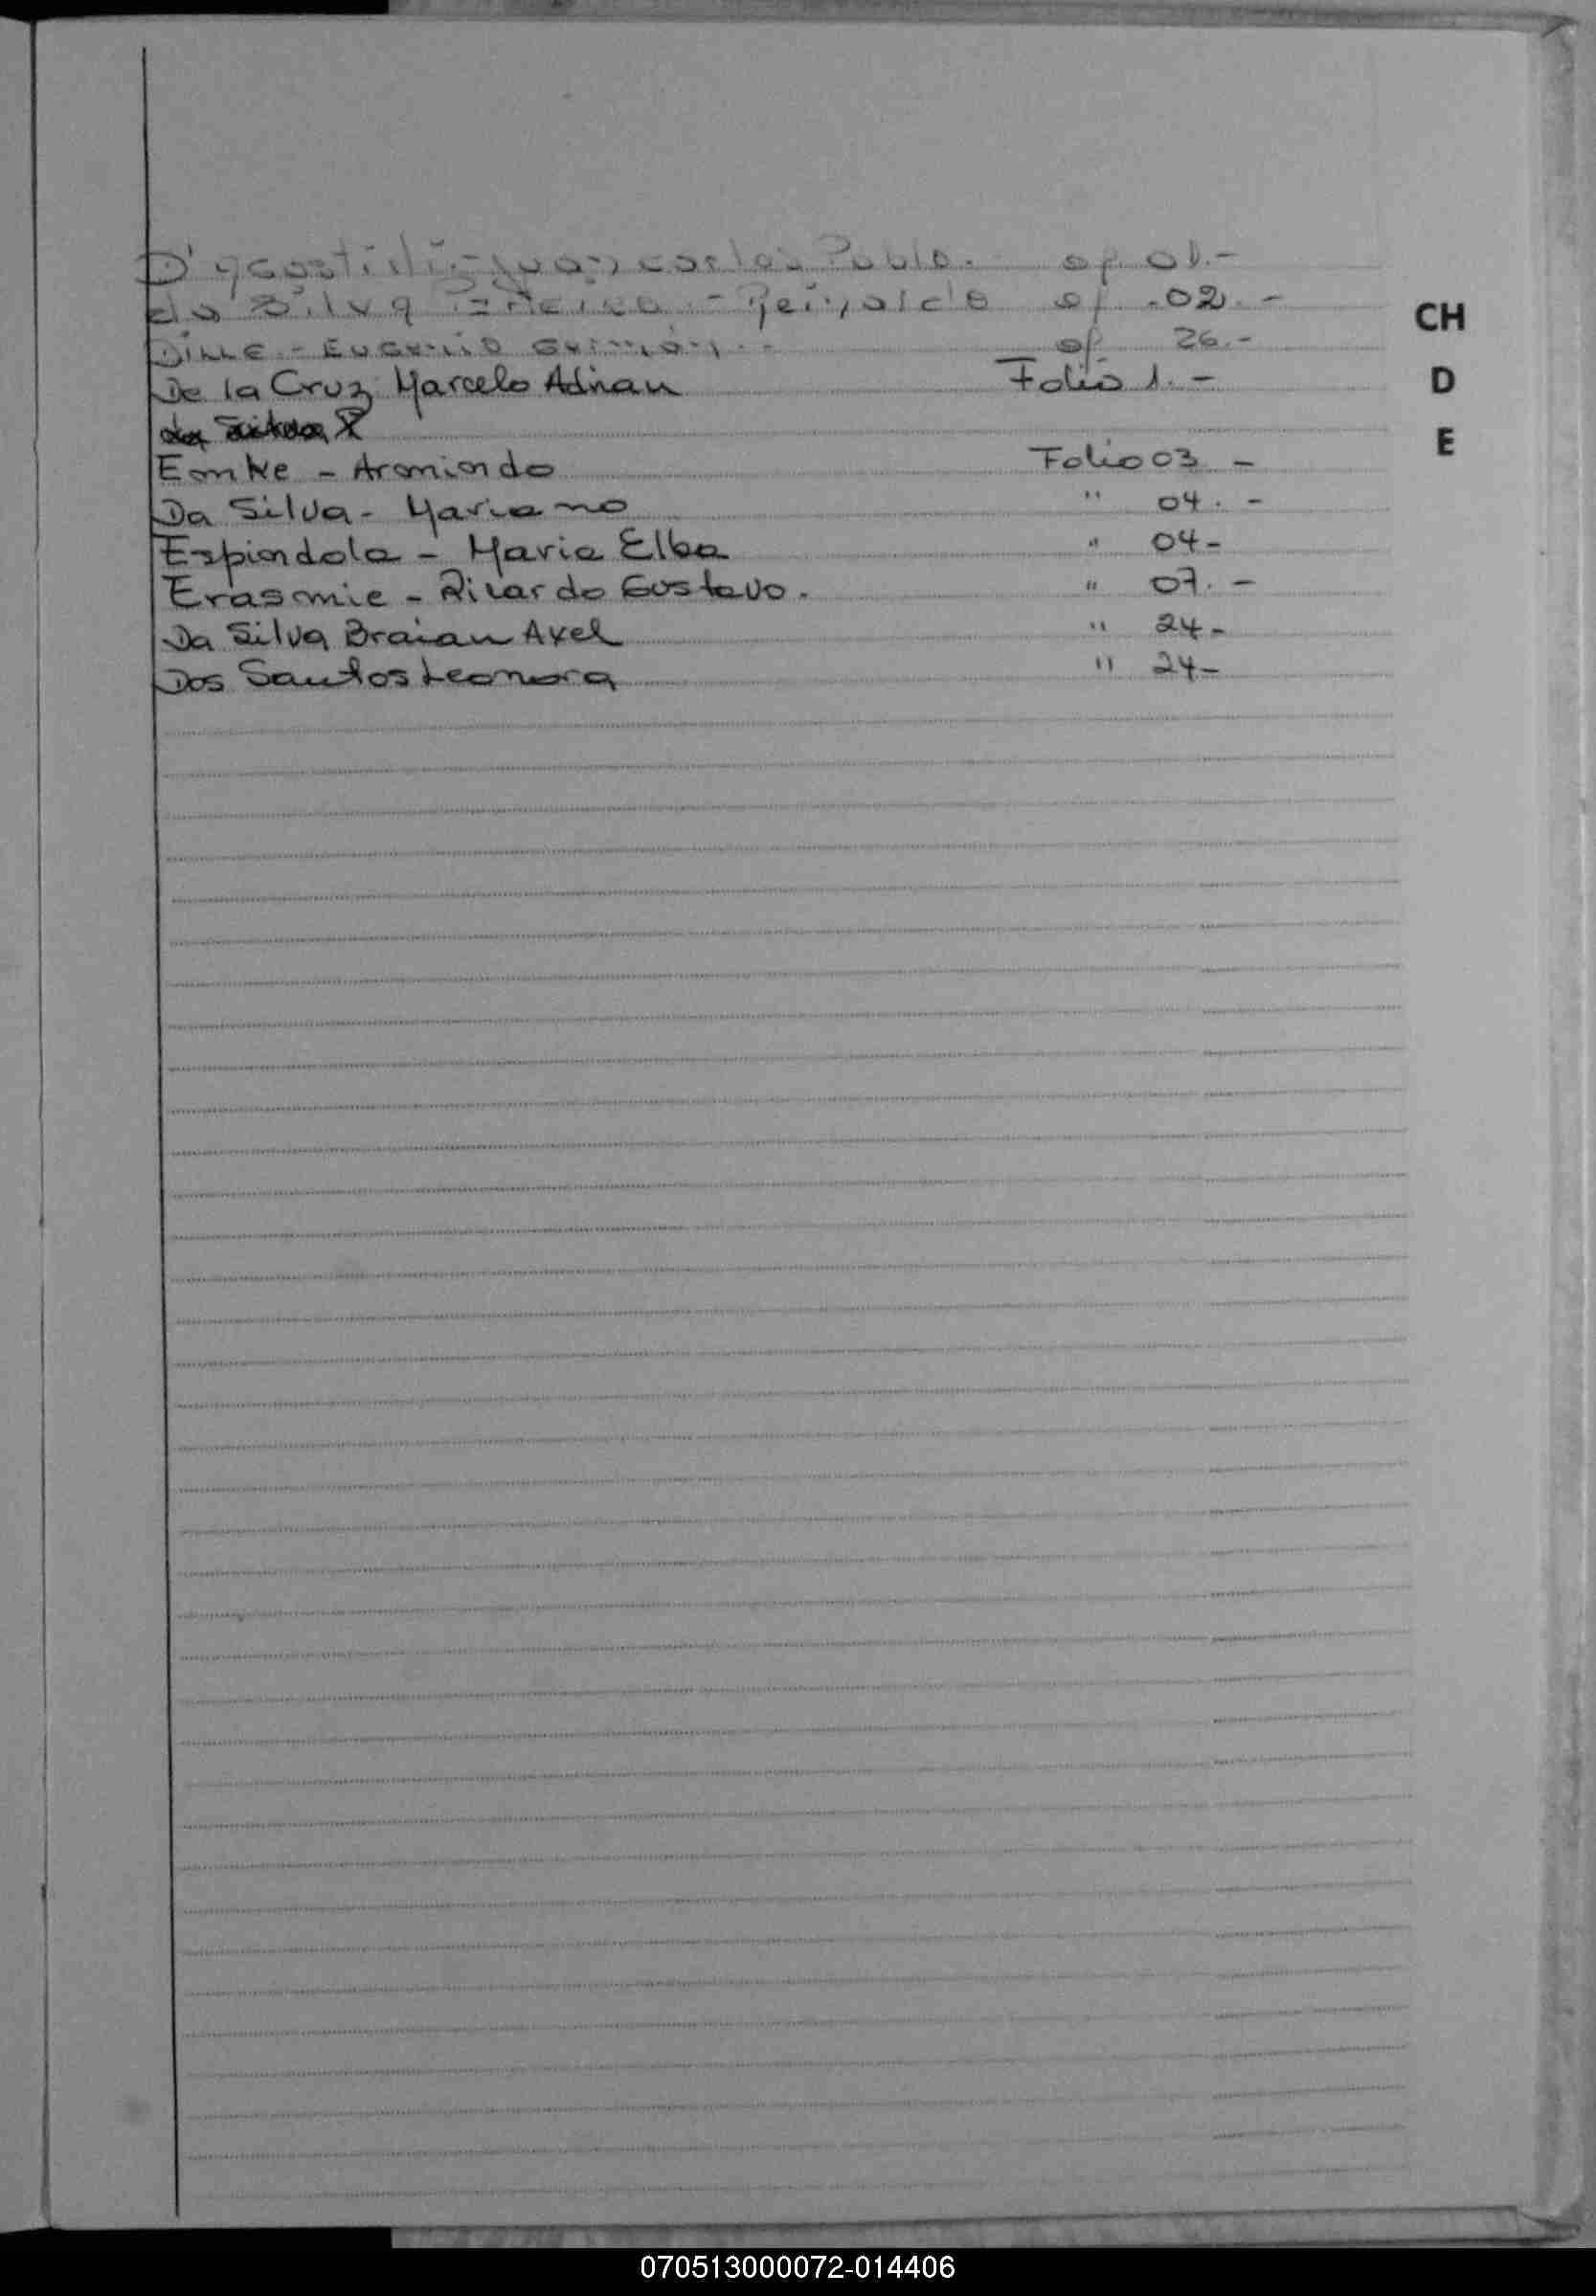 D'Agostini - Juan Carlos Pablo. of. 01.-
da Silva - Reinaldo of .02.-
DILLE - EUGENIO of. 26.-
De la Cruz Marcelo Adrian Folio 1.-
Emke - Armindo Folio 03 -
Da Silva - Mariano " 04. -
Espindola - Maria Elba " 04-
Erasmie - Ricardo Gustavo. " 07. -
Da Silva Braian Axel " 24-
Dos Santos Leonora " 24-
CH
D
E
070513000072-014406